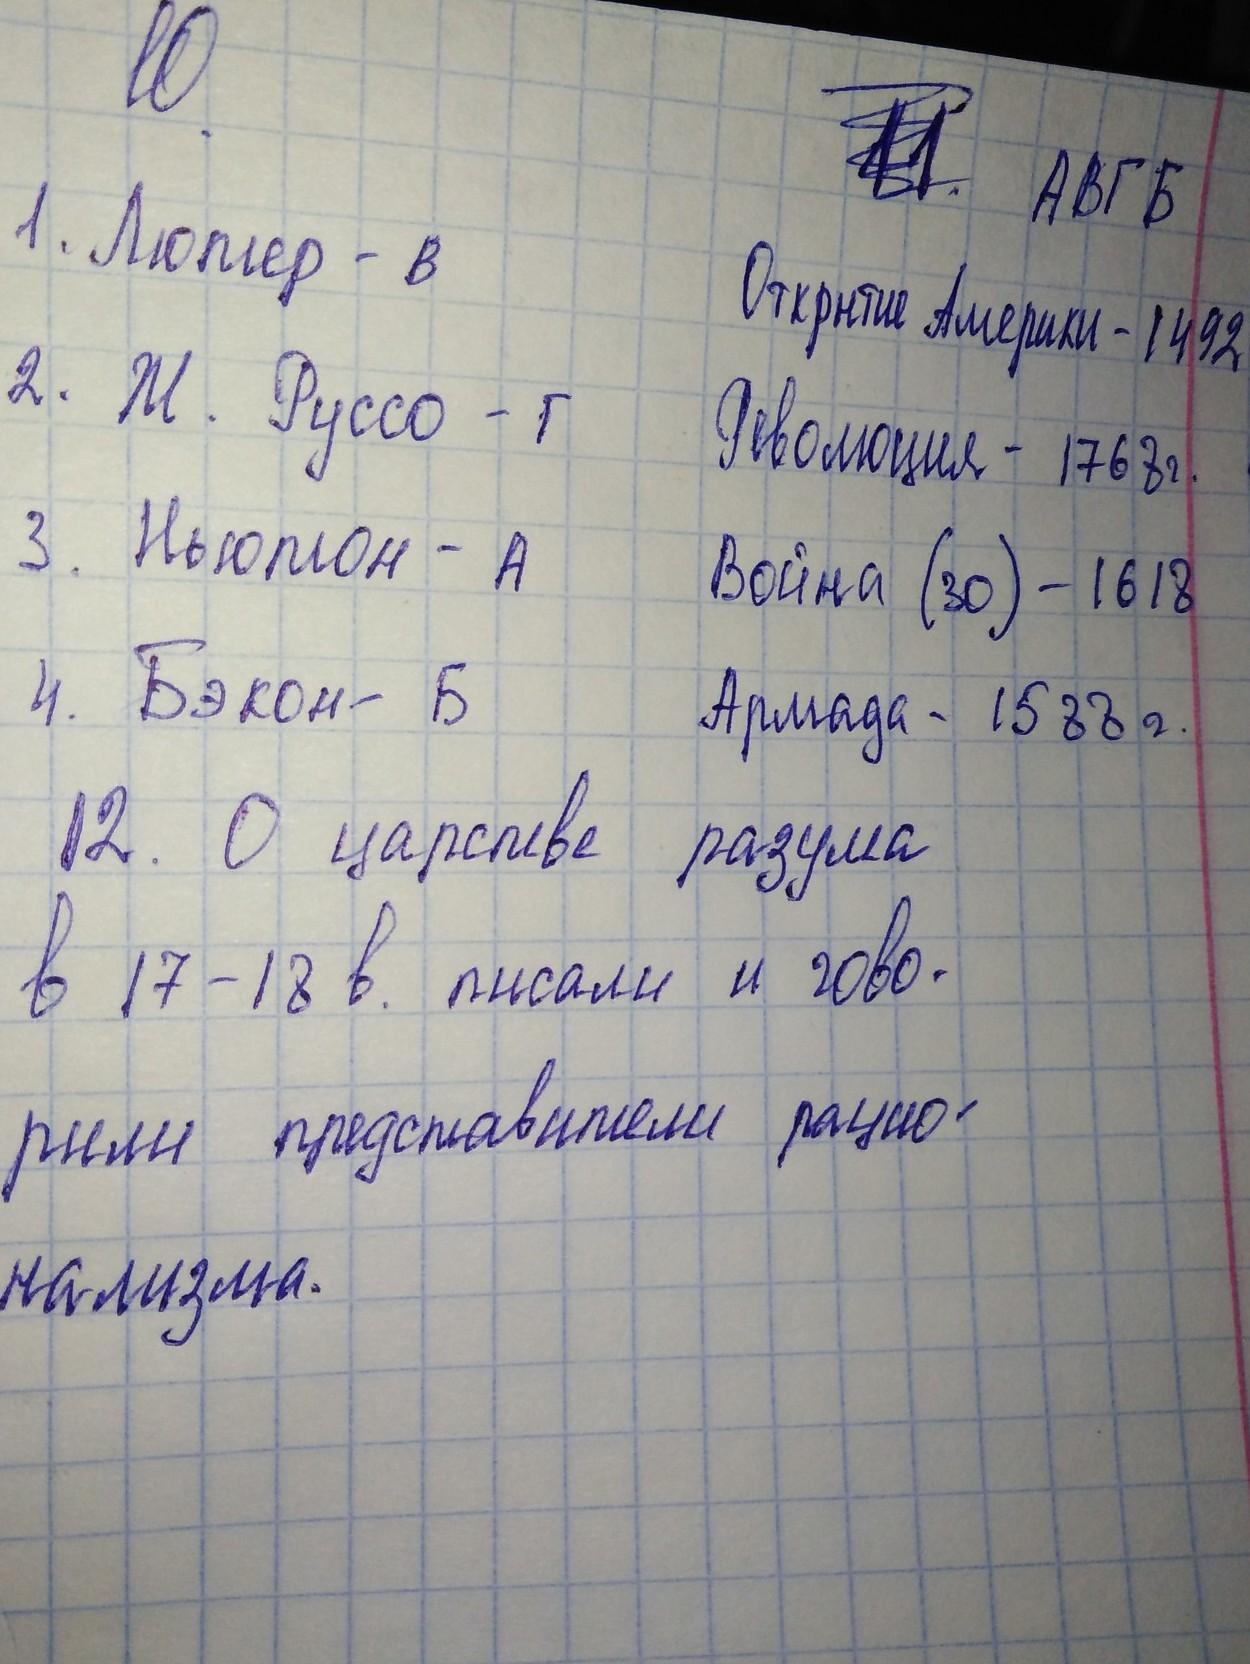 10.
1. Лютер - в
2. Ж. Руссо - г
3. Ньютон - А
4. Бэкон - Б
11. АВГБ
Открытие Америки - 1492
Революция - 1768г.
Война (30) - 1618
Армада - 1588 г.
12. О царстве разума
в 17-18 в. писали и гово-
рили представители рацио-
нализма.